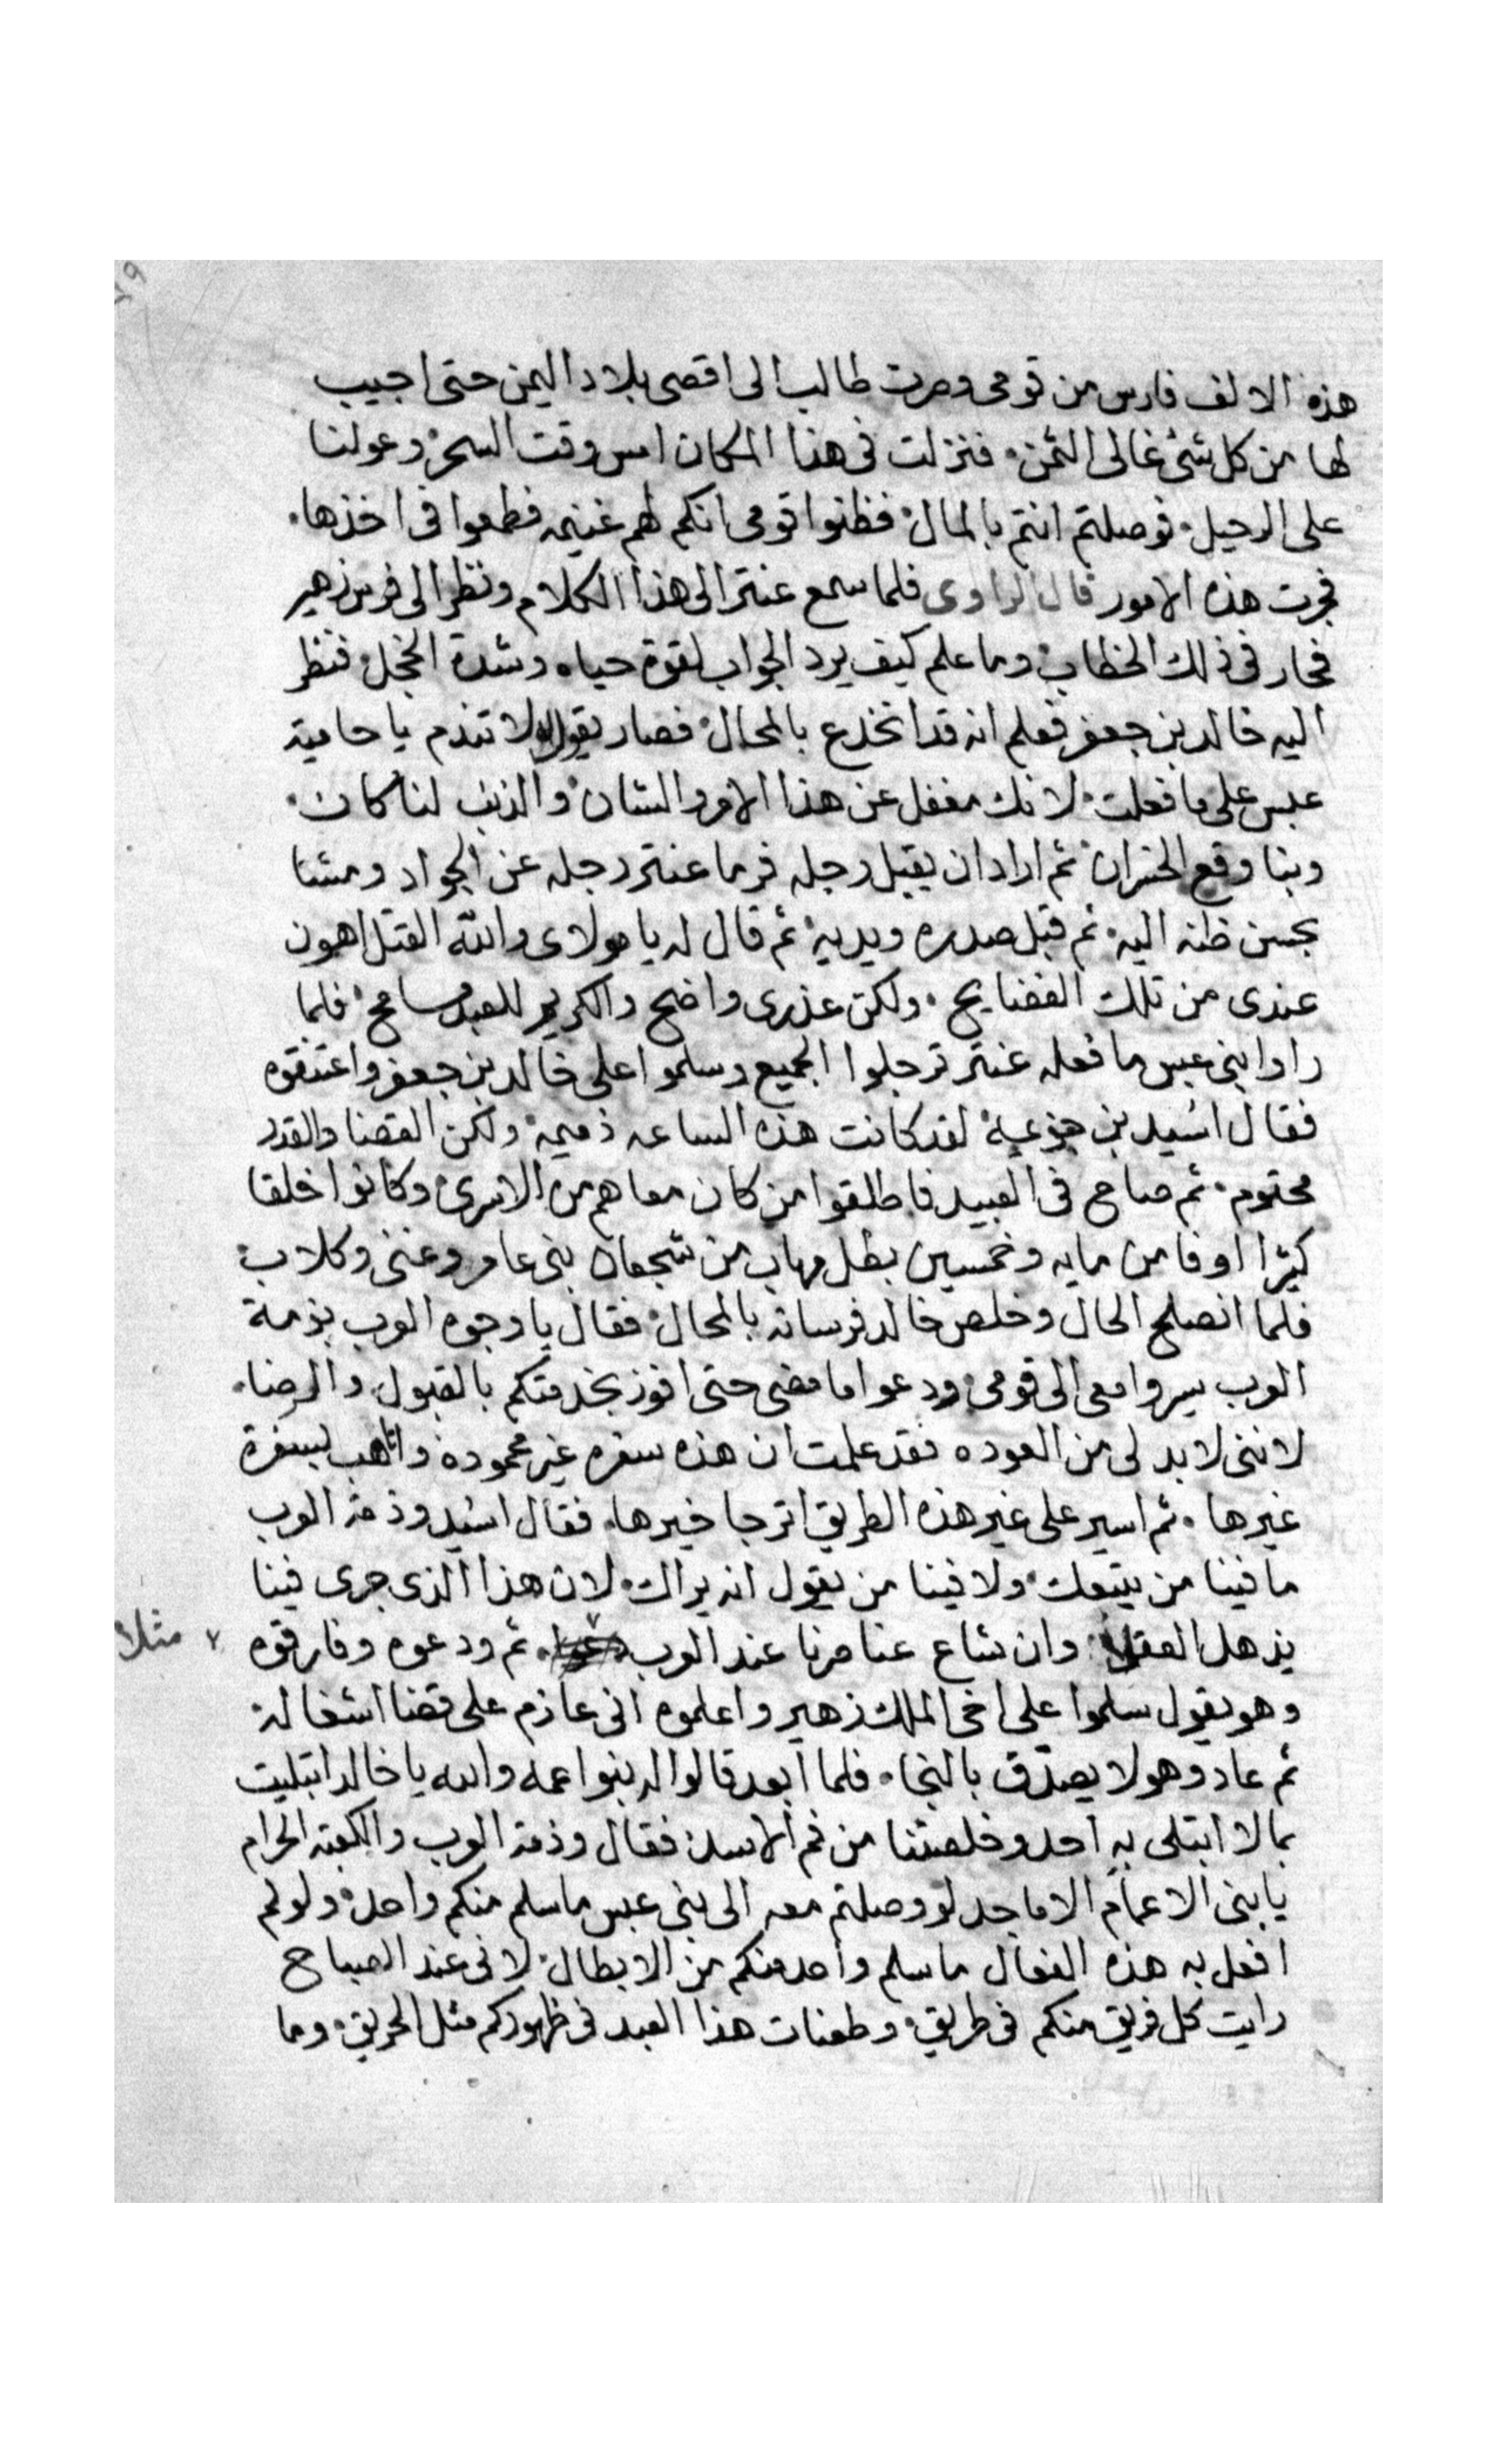 ٧٩
هذه الالف فارس من قومى وصرت طالب الى اقصى بلاد اليمن حتى اجيب
لها من كل شئ غالى الثمن. فنزلت فى هذا المكان امس وقت السحر وعولنا
على الرحيل. فوصلتم انتم بالمال فظنوا قومى انكم لهم غنيمه فطمعوا فى اخذها.
فجرت هذه الامور قال الراوى فلما سمع عنتر الى هذا الكلام ونظر الى فرس زهير
فحار فى ذلك الخطاب وما علم كيف يرد الجواب لقوة حياه وشدة الخجل فنظر
اليه خالد بن جعفر فعلم انه قد انخدع بالمحال فصار يقول له لا تندم يا حامية
عبس على ما فعلت. لانك مغفل عن هذا الامر والشان والذنب لنا كان.
وبنا وقع الخسران ثم اراد ان يقبل رجله فرما عنتر رجله عن الجواد ومشا
بحسن ظنه اليه. ثم قبل صدره ويديه ثم قال له يا مولاى والله القتل اهون
عندى من تلك الفضايح. ولكن عذرى واضح والكريم للعبد مسامح. فلما
راوا بنى عبس ما فعله عنتر ترجلوا الجميع وسلموا على خالد بن جعفر واعتنقوه
فقال اسُيد بن جزعية لقد كانت هذه الساعه ذميمة ولكن القضا والقدر
محتوم. ثم صاح فى العبيد فاطلقوا من كان معاهم من الاسرى وكانوا خلقا
كثيرا اوفا من مايه وخمسين بطل مهاب من شجعان بنى عامر وغنى وكلاب
فلما انصلح الحال وخلص خالد فرسانه بالمحال فقال يا وجوه العرب بذمة
العرب سيروا معى الى قومى ودعوا ما مضى حتى افوز بخدمتكم بالقبول والرضا.
لاننى لا بد لى من العوده فقد علمت ان هذه سفره غير محموده واتاهب لسفرة
غيرها. ثم اسير على غير هذه الطريق اترجا خيرها. فقال اسُيد وذمة العرب
ما فينا من يتبعك ولا فينا من يقول انه يراك. لان هذا الذى جرى فينا
يذهل العقلا وان شاع عنا صرنا عند العرب ٧ ثم ودعوه وفارقوه
٧ مثلا
وهو يقول سلموا على اخى الملك زهير واعلموه انى عازم على قضا اشغاله
ثم عاد وهو لا يصدّق بالنجا. فلما ابعد قالوا له بنوا عمه والله يا خالد ابتليت
بما لا ابتلى به احد وخلصتنا من فم الاسد فقال وذمة العرب والكعبة الحرام
يا بنى الاعمام الاماجد لو وصلتم معه الى بنى عبس ما سلم منكم واحد ولو لم
افعل به هذه الفعال ما سلم واحد منكم من الابطال لانى عند الصباح
رايت كل فريق منكم فى طريق. وطعنات هذا العبد فى ظهوركم مثل الحريق. وما